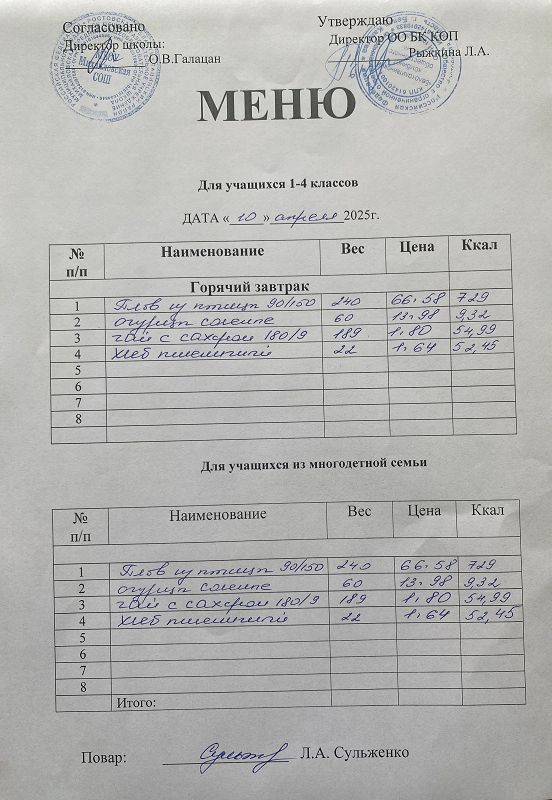 Согласовано
Директор школы:
О.В.Галацан
Утверждаю
Директор ОО БК КОП
Рыжкина Л.А.
МЕНЮ
Для учащихся 1-4 классов
ДАТА « 10 » апреля 2025г.
№ п/п Наименование Вес Цена Ккал
Горячий завтрак
1 Плов из птицы 90/150 240 66.58 729
2 огурцы соленые 60 13.98 9,32
3 чай с сахаром 180/9 189 1.80 54,99
4 Хлеб пшеничный 22 1.64 52,45
5
6
7
8
Для учащихся из многодетной семьи
№ п/п Наименование Вес Цена Ккал
1 Плов из птицы 90/150 240 66.58 729
2 огурцы соленые 60 13.98 9,32
3 чай с сахаром 180/9 189 1.80 54,99
4 Хлеб пшеничный 22 1.64 52,45
5
6
7
8
Итого:
Повар: Л.А. Сульженко